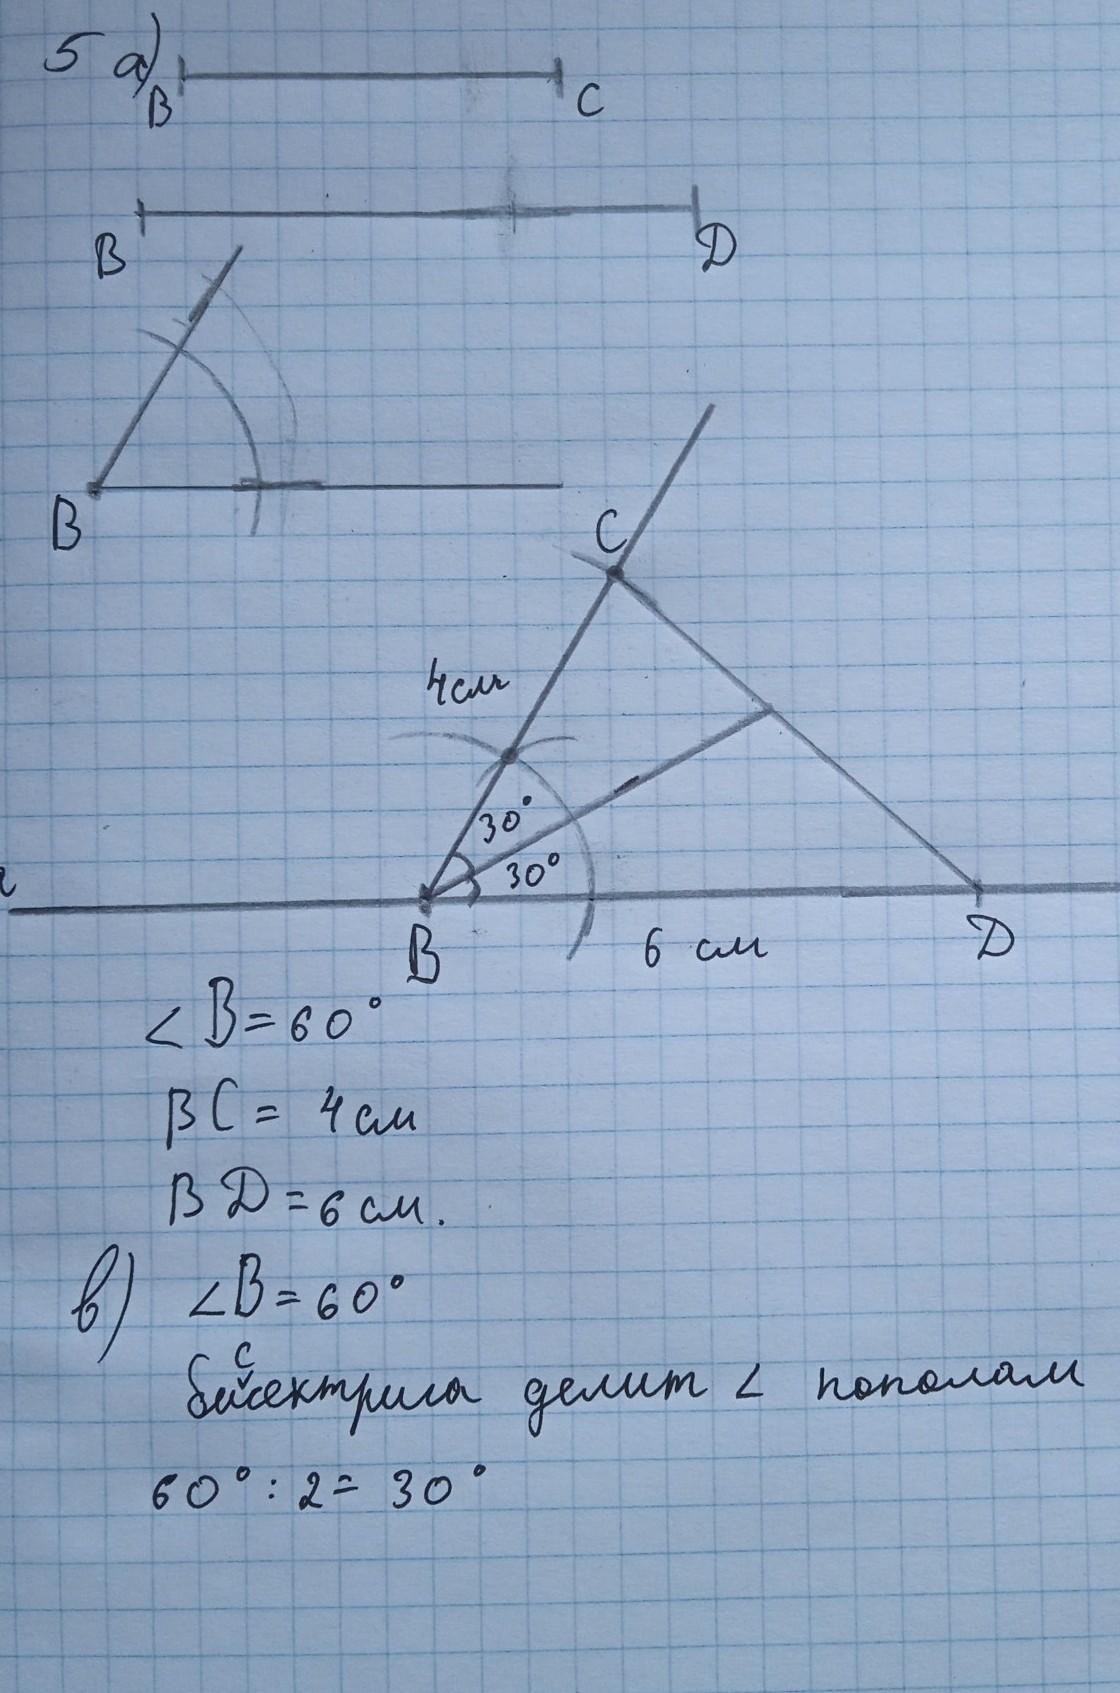 5 а)
B C
B D
B
C
4 см
30°
30°
B 6 см D
∠B = 60°
BC = 4 см
BD = 6 см.
в) ∠B = 60°
с
биссектриса делит ∠ пополам
60° : 2 = 30°